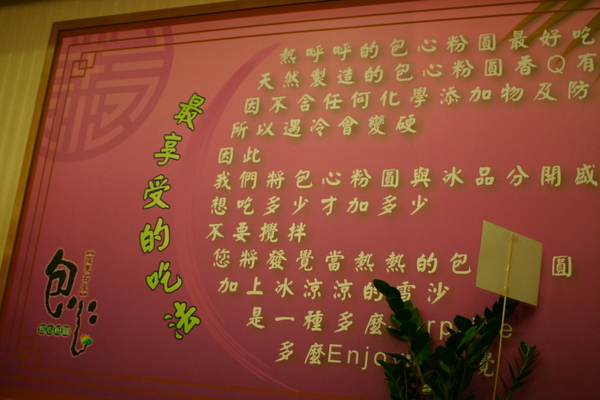 最享受的吃法
熱呼呼的包心粉圓最好吃
天然製造的包心粉圓香Q有
因不含任何化學添加物及防
所以遇冷會變硬
因此
我們將包心粉圓與冰品分開盛
想吃多少才加多少
不要攪拌
您將發覺當熱熱的包 圓
加上冰涼涼的雪沙
是一種多麼 rp e
多麼Enjoy 覺
包心
包心粉圓